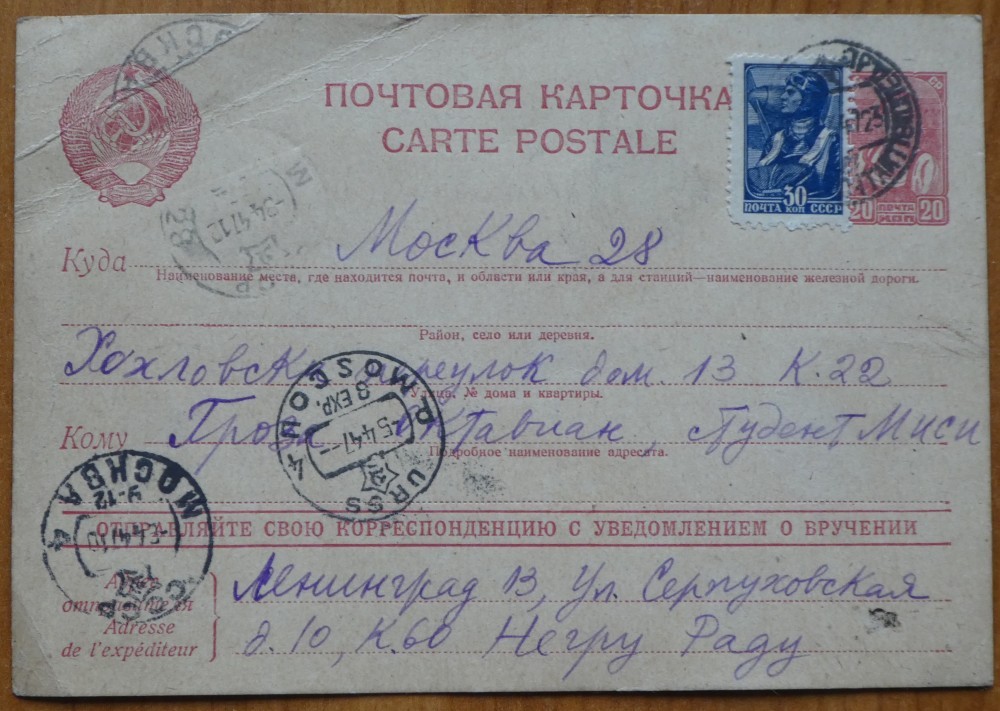 ПОЧТОВАЯ КАРТОЧКА
CARTE POSTALE
30
ПОЧТА КОП СССР
20 ПОЧТА КОП 20
Куда Москва 28
Наименование места, где находится почта, и области или края, а для станций—наименование железной дороги.
Район, село или деревня.
переулок дом. 13 К. 22
Улица, № дома и квартиры.
Кому Октавиан, студент Миси
Подробное наименование адресата.
ОТПРАВЛЯЙТЕ СВОЮ КОРРЕСПОНДЕНЦИЮ С УВЕДОМЛЕНИЕМ О ВРУЧЕНИИ
Адрес отправителя
Adresse de l'expéditeur
Ленинград 13, Ул. Серпуховская
д. 10, К. 60 Негру Раду
МОСКВА
URSS MOSCOU 4
8 EXP.
-5.4.47
МОСКВА 4
У-12
СССР